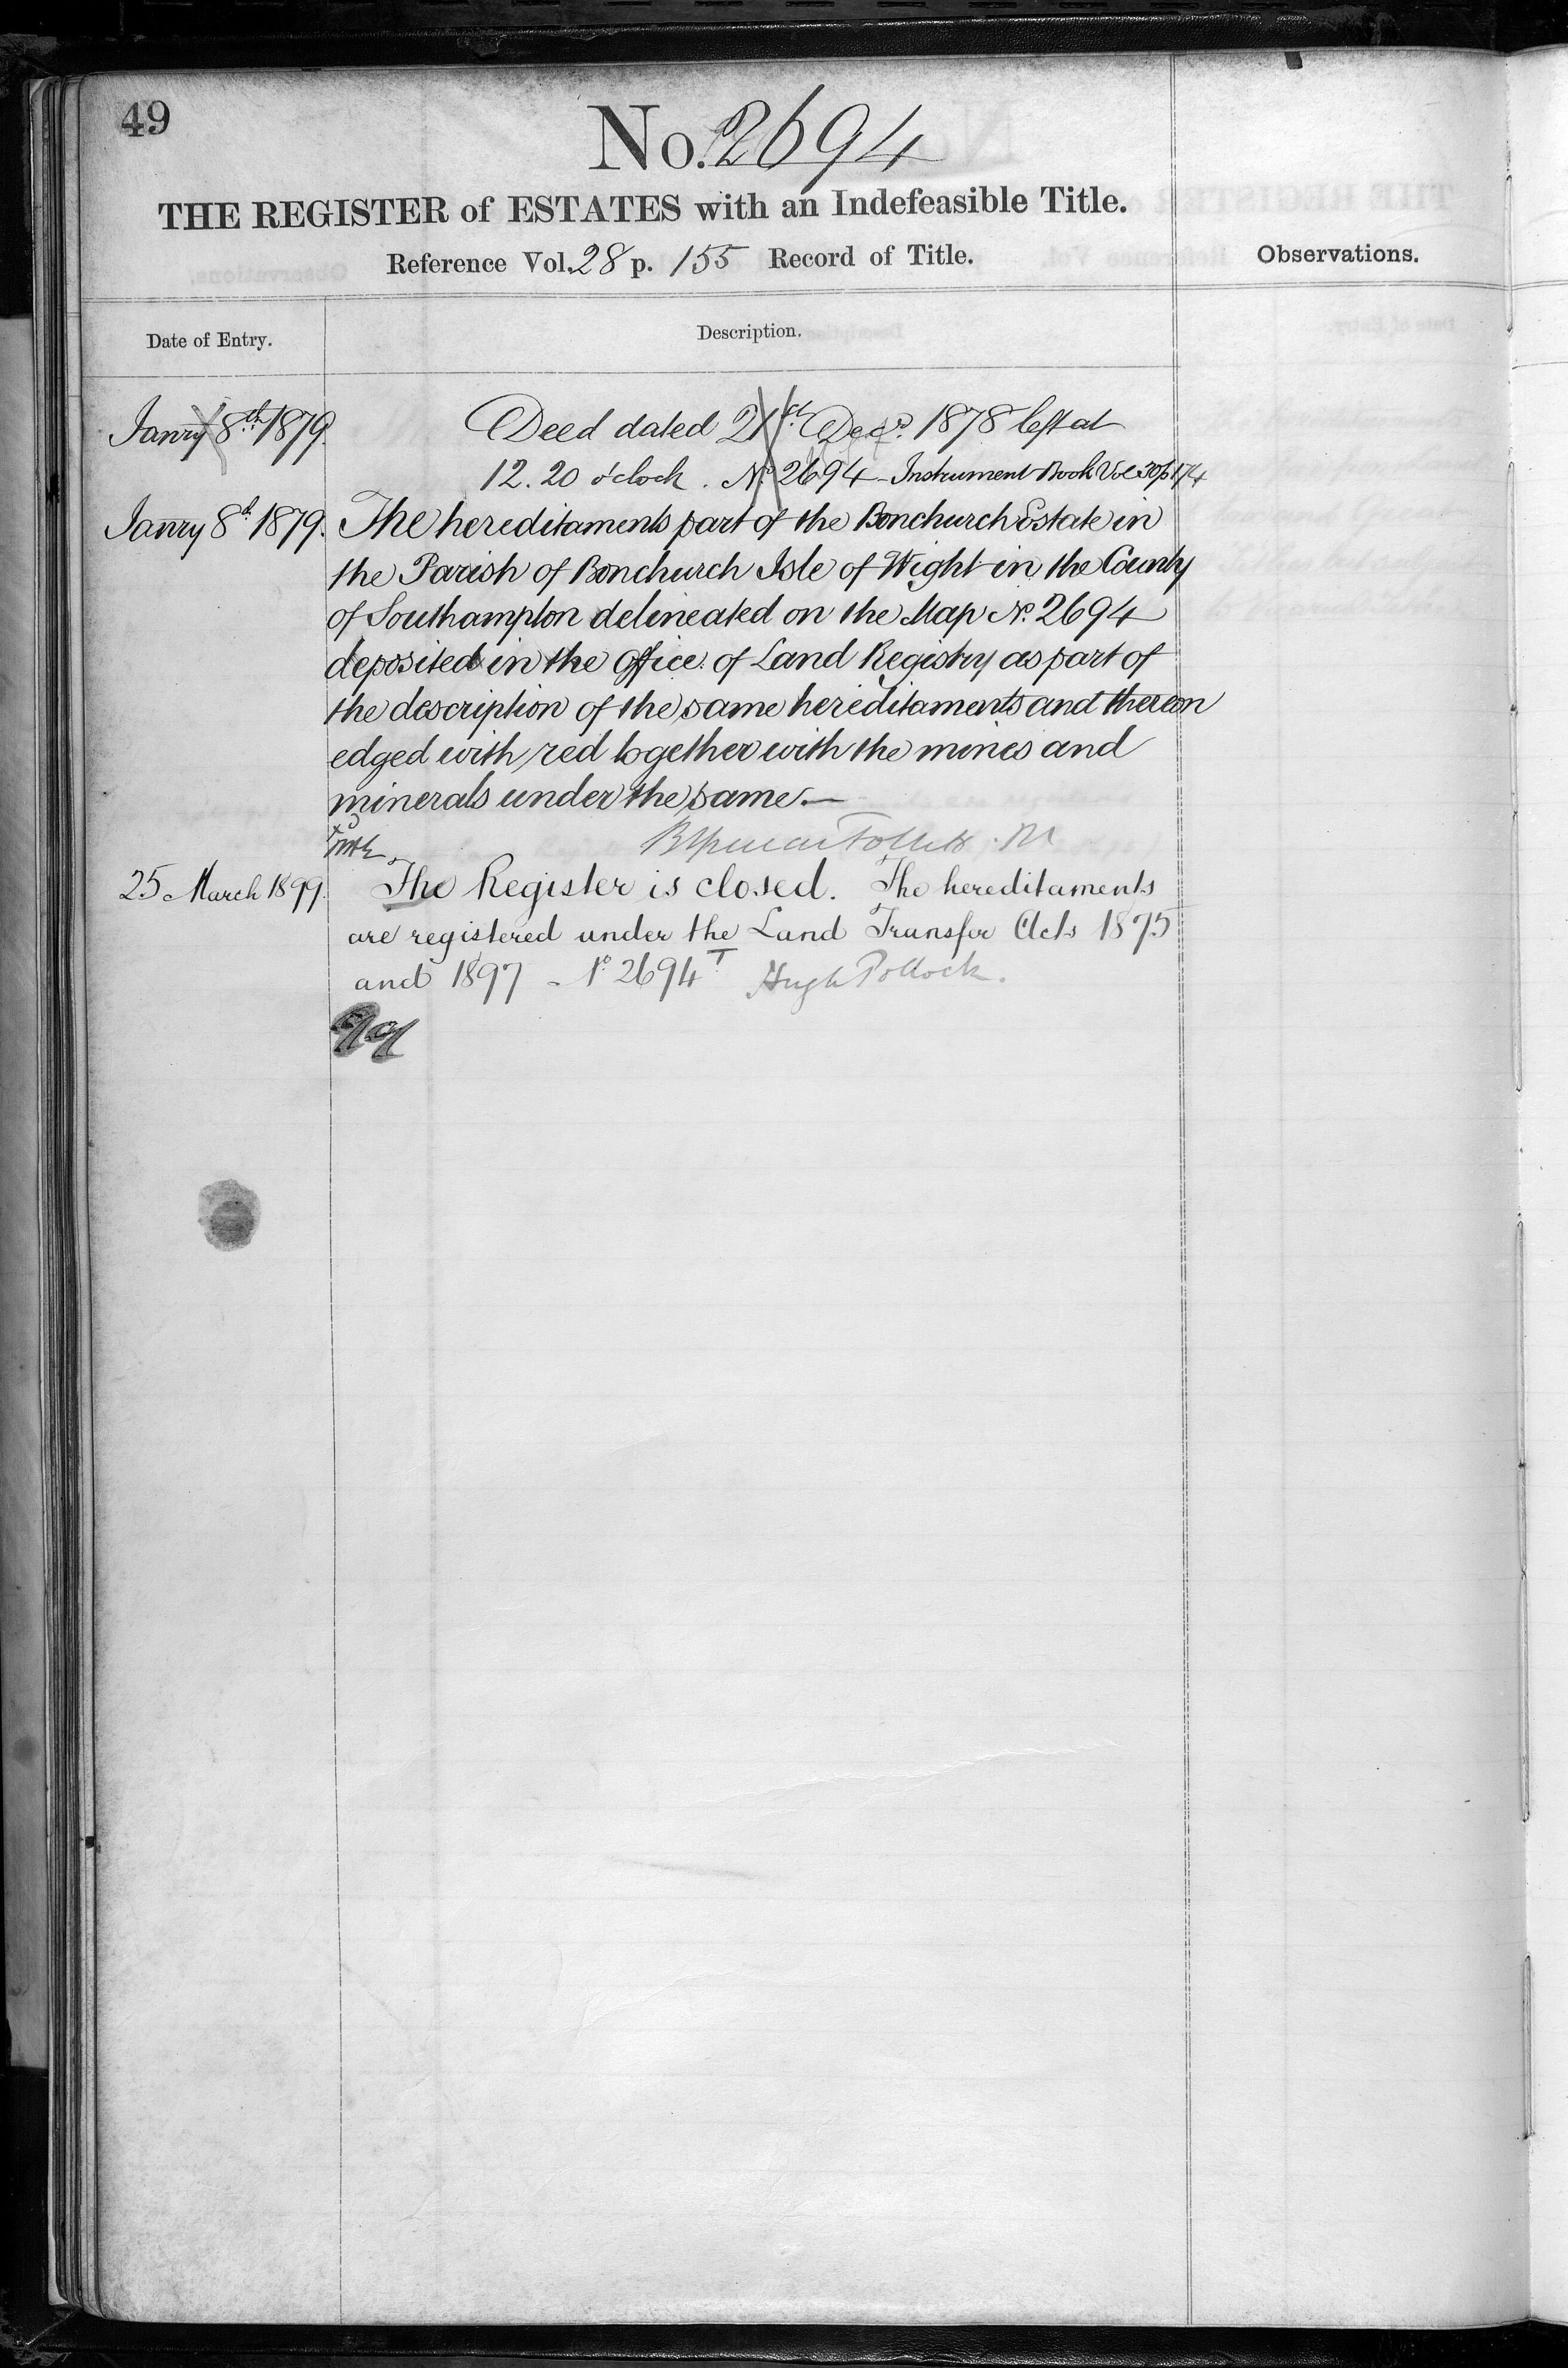 49
No. 2694
THE REGISTER of ESTATES with an Indefeasible Title.
Reference Vol. 28 p. 155 Record of Title.
Observations.
Date of Entry.
Description.
Janry 8th 1879. Deed dated 21st Decr. 1878 left at
12.20 o'clock. No. 2694 - Instrument Book Vol 30 p 174
Janry 8th 1879. The hereditaments part of the Bonchurch Estate in
the Parish of Bonchurch Isle of Wight in the County
of Southampton delineated on the Map No. 2694
deposited in the Office of Land Registry as part of
the description of the same hereditaments and thereon
edged with red together with the mines and
minerals under the same.—
25 March 1899. The Register is closed. The hereditaments
are registered under the Land Transfer Acts 1875
and 1897 - No. 2694T Hugh Pollock.